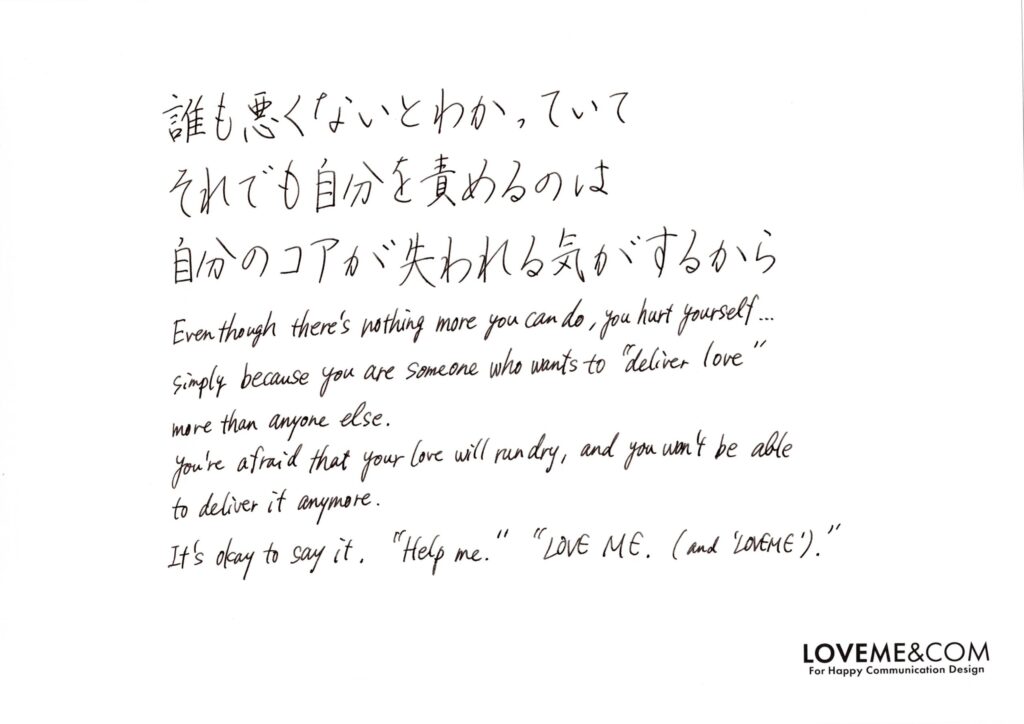 誰も悪くないとわかっていて
それでも自分を責めるのは
自分のコアが失われる気がするから
Even though there's nothing more you can do, you hurt yourself...
simply because you are someone who wants to "deliver love"
more than anyone else.
You're afraid that your love will run dry, and you won't be able
to deliver it anymore.
It's okay to say it. "Help me." "LOVE ME. (and 'LOVEME')."
LOVEME&COM
For Happy Communication Design